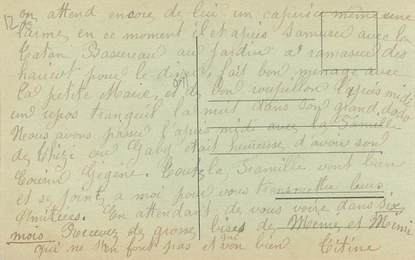 12 on attend encore de lui un caprice même une
larme, en ce moment il et après s'amuser avec la
Caton Bassereau au jardin a ramasser des
haricot pour le diner, fait bon ménage avec
la petite et le bon roupillon l'après midi
un repos tranquil la nuit dans son grand dodo
Nous avons passer l'après midi avec la Famille
de ou Gaby était heureuse d'avoir son
Cousin Gégène. Toute la Famille vont bien
et se joint a moi pour vous transmettre leurs
Amitiées. En attendant de vous voire dans six
mois. Recevez de grosses bises de Mémé et Mimi
qui ne s'en font pas et von bien Titine